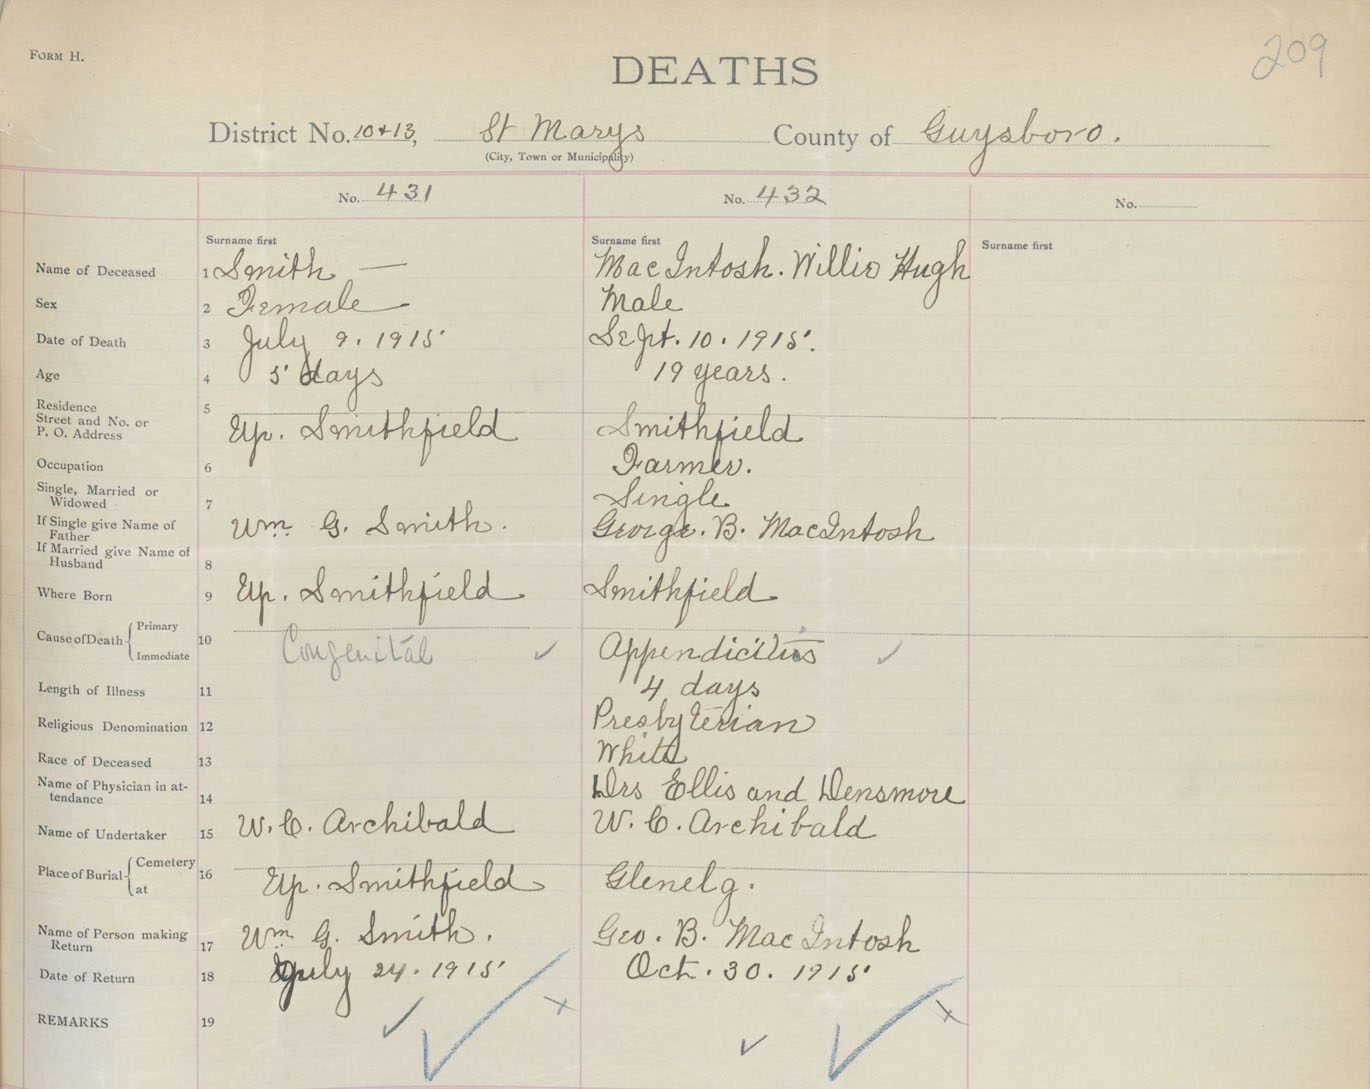 FORM H.
209
DEATHS
District No. 10+13, St Marys County of Guysboro.
(City, Town or Municipality)
No. 431 No. 432 No.
Surname first Surname first Surname first
Name of Deceased 1 Smith — MacIntosh. Willie Hugh
Sex 2 Female Male
Date of Death 3 July 9. 1915 Sept. 10. 1915.
Age 4 5 days 19 years.
Residence 5
Street and No. or
P. O. Address Up. Smithfield Smithfield
Occupation 6 Farmer.
Single, Married or
Widowed 7 Single
If Single give Name of
Father Wm. G. Smith. George. B. MacIntosh
If Married give Name of
Husband 8
Where Born 9 Up. Smithfield Smithfield
Cause of Death Primary 10
Immediate Congenital ✓ Appendicitis ✓
Length of Illness 11 4 days
Religious Denomination 12 Presbyterian
Race of Deceased 13 White
Name of Physician in at-
tendance 14 Drs Ellis and Densmore
Name of Undertaker 15 W. C. Archibald W. C. Archibald
Place of Burial Cemetery 16
at Up. Smithfield Glenelg.
Name of Person making
Return 17 Wm. G. Smith. Geo. B. MacIntosh
Date of Return 18 July 24. 1915 Oct. 30. 1915
REMARKS 19 ✓ ✓ x ✓ ✓ x